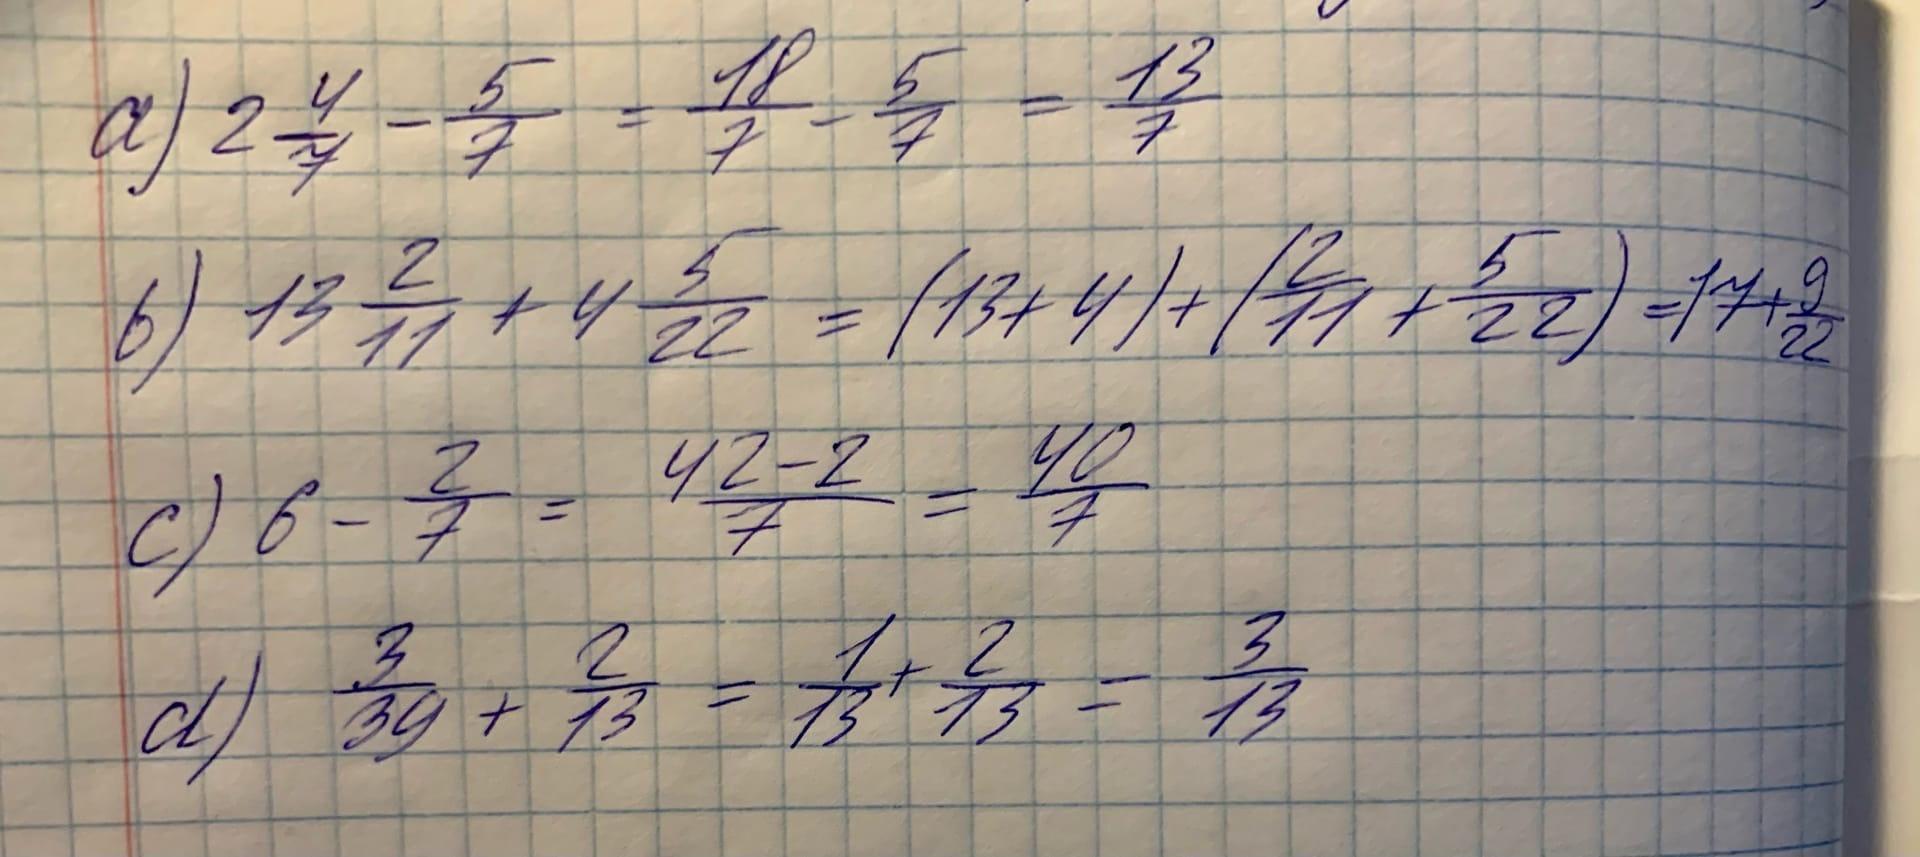 a) 2 4/7 - 5/7 = 18/7 - 5/7 = 13/7
b) 13 2/11 + 4 5/22 = (13+4)+(2/11 + 5/22) = 17+9/22
c) 6 - 2/7 = 42-2/7 = 40/7
d) 3/39 + 2/13 = 1/13 + 2/13 = 3/13